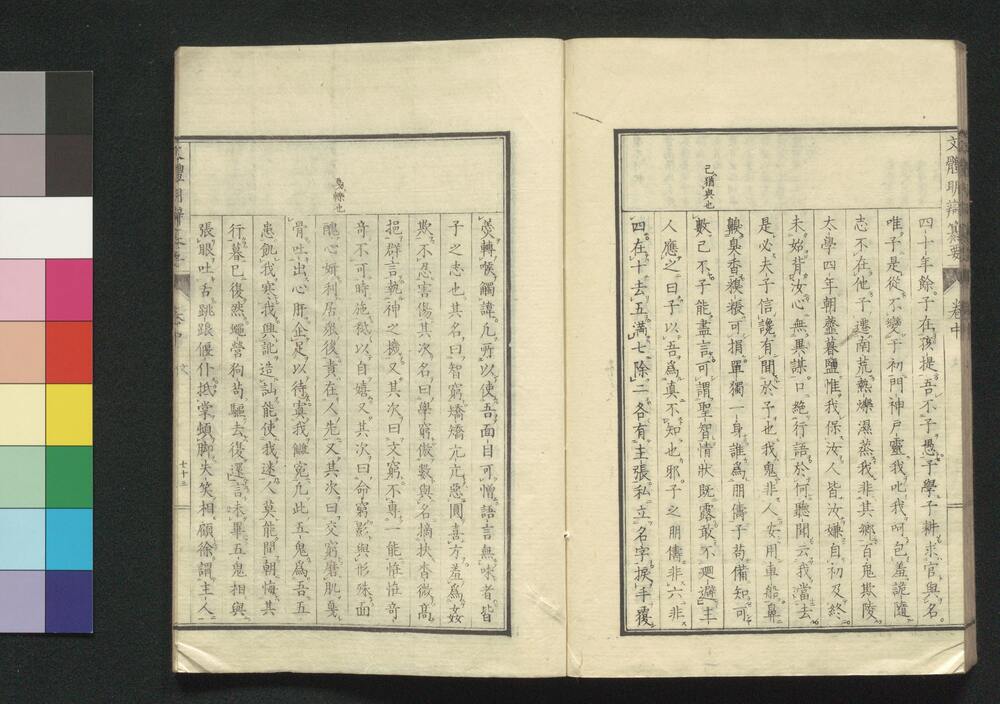 文體明辯纂要
卷中
己猶與也
四十年餘子在孩提吾不子愚子學子耕求官與名
唯子是從不變于初門神戶靈我叱我呵包羞詭隨
志不在他子遷南荒熱爍濕蒸我非其鄉百鬼欺陵
太學四年朝虀暮鹽惟我保汝人皆汝嫌自初及終
未始背汝心無異謀口絕行語於何聽聞云我當去
是必夫子信讒有間於予也我鬼非人安用車船鼻
齅臭香糗粻可捐單獨一身誰爲朋儔子苟備知可
數已不子能盡言可謂聖智情狀既露敢不迴避主
人應之曰子以吾爲真不知也邪子之朋儔非六非
四在十去五滿七除二各有主張私立名字捩手覆
戛轢也
羹轉喉觸諱凢所以使吾面目可憎語言無味者皆
子之志也其名曰智窮矯矯亢亢惡圓喜方羞爲姦
欺不忍害傷其次名曰學窮傲數與名摘抉杳微高
挹群言執神之機又其次曰文窮不專一能恠恠竒
竒不可時施秪以自嬉又其次曰命窮影與形殊面
醜心妍利居衆後責在人先又其次曰交窮磨肌戛
骨吐出心肝企足以待寘我讎寃凢此五鬼爲吾五
患飢我寒我興訛造訕能使我迷人莫能間朝悔其
行暮已復然蠅營狗苟驅去復還言未畢五鬼相與
張眼吐舌跳踉偃仆抵掌頓脚失笑相顧徐謂主人
文
七十三